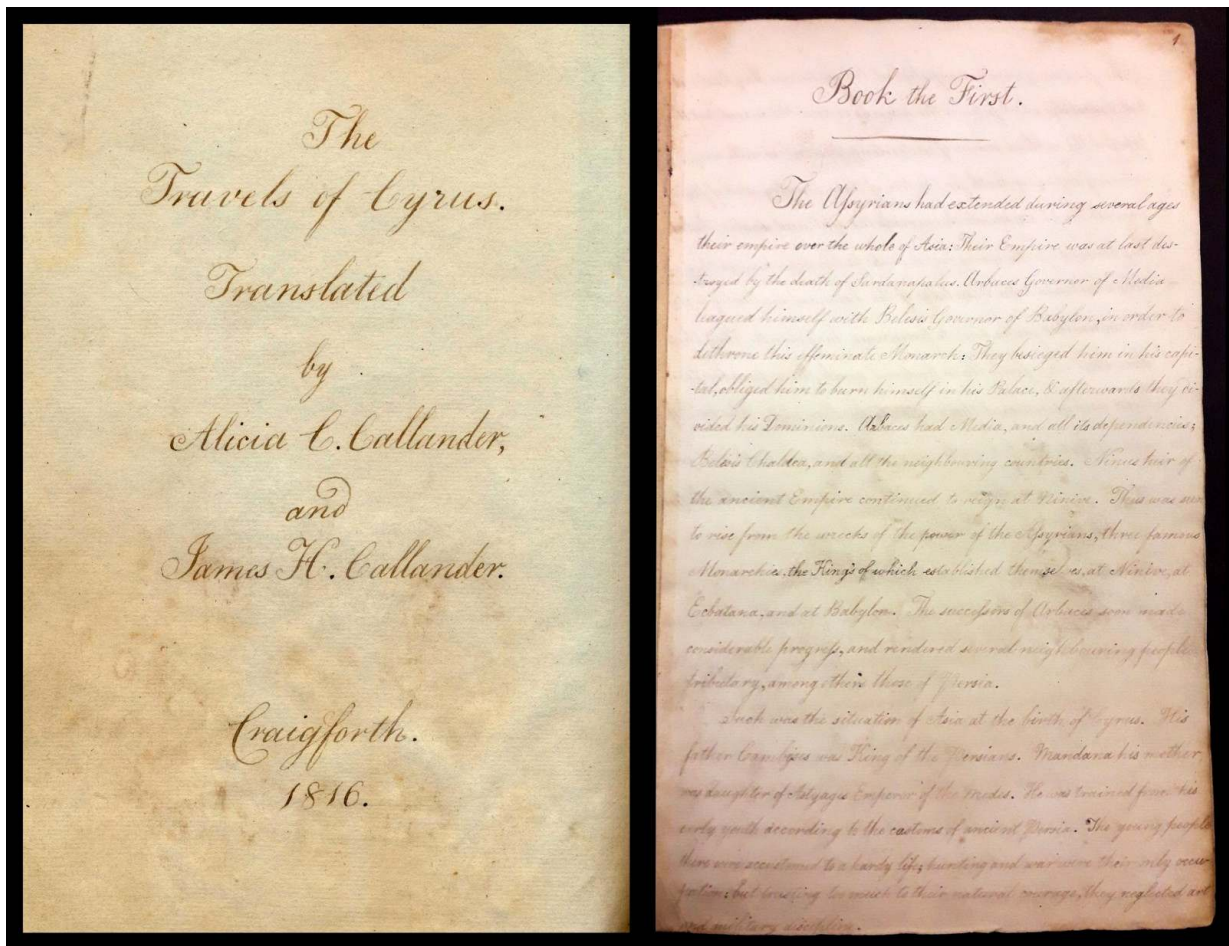 The
Travels of Cyrus.
Translated
by
Alicia C. Callander,
and
James H. Callander.
Craigforth.
1816.
1
Book the First.
The Aſsyrians had extended during several ages
their empire over the whole of Asia: Their Empire was at last des-
troyed by the death of Sardanapalus. Arbaces Governor of Media
leagued himself with Belesis Governor of Babylon, in order to
dethrone this effeminate Monarch: They besieged him in his capi-
-tal, obliged him to burn himself in his Palace, & afterwards they di-
vided his Dominions. Arbaces had Media, and all its dependencies;
Belesis Chaldea, and all the neighbouring countries. Ninus heir of
the ancient Empire continued to reign at Ninive. Thus was seen
to rise from the wrecks of the power of the Aſsyrians, three famous
Monarchies, the Kings of which established themselves, at Ninive, at
Ecbatana, and at Babylon. The succeſsors of Arbaces soon made
considerable progreſs, and rendered several neighbouring people
tributary, among others those of Persia.
Such was the situation of Asia at the birth of Cyrus. His
father Cambyses was King of the Persians. Mandana his mother
was daughter of Astyages Emperor of the Medes. He was trained from his
early youth according to the customs of ancient Persia. The young people
there were accustomed to a hardy life; hunting and war were their only occu-
pation: but trusting too much to their natural courage, they neglected art
and military discipline.